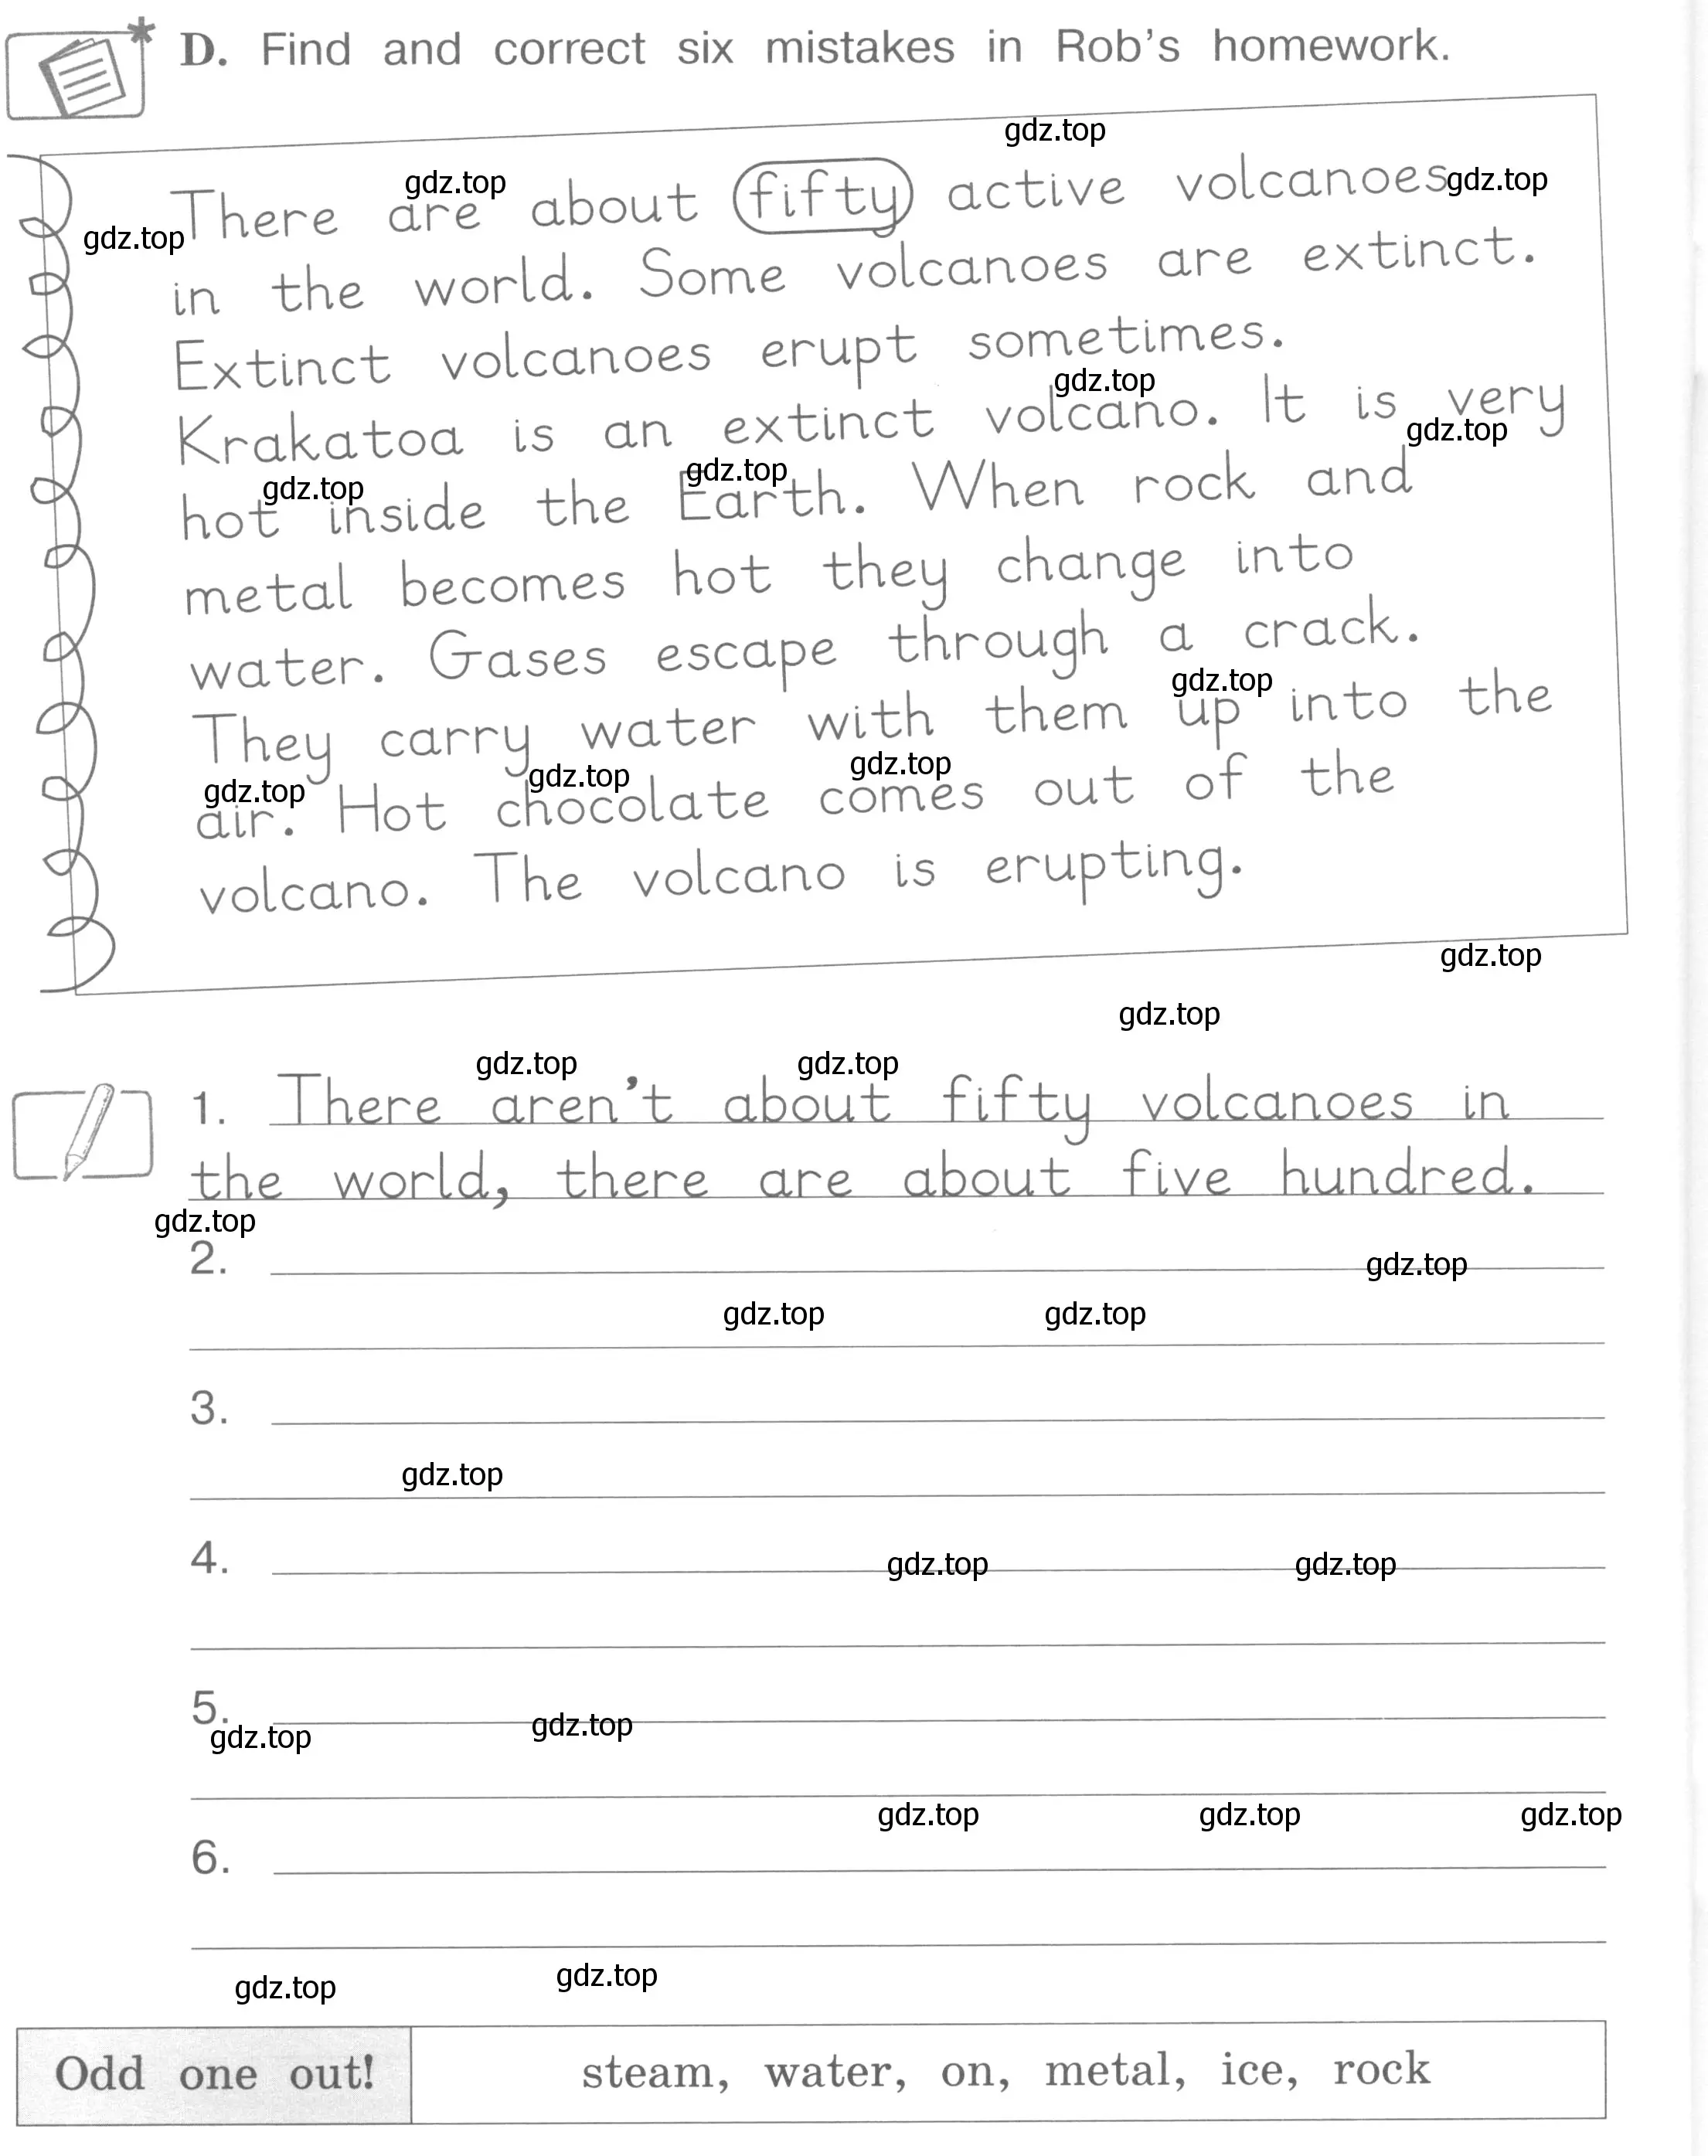 D. Find and correct six mistakes in Rob's homework.
gdz.top
There are about fifty active volcanoes
gdz.top gdz.top gdz.top
in the world. Some volcanoes are extinct.
Extinct volcanoes erupt sometimes.
gdz.top
Krakatoa is an extinct volcano. It is very
gdz.top gdz.top gdz.top
hot inside the Earth. When rock and
metal becomes hot they change into
water. Gases escape through a crack.
gdz.top
They carry water with them up into the
gdz.top gdz.top gdz.top
air. Hot chocolate comes out of the
volcano. The volcano is erupting.
gdz.top
gdz.top
gdz.top gdz.top
1. There aren't about fifty volcanoes in
the world, there are about five hundred.
gdz.top
2.
gdz.top
gdz.top gdz.top
3.
gdz.top
4.
gdz.top gdz.top
5.
gdz.top gdz.top
gdz.top gdz.top gdz.top
6.
gdz.top gdz.top
Odd one out! steam, water, on, metal, ice, rock